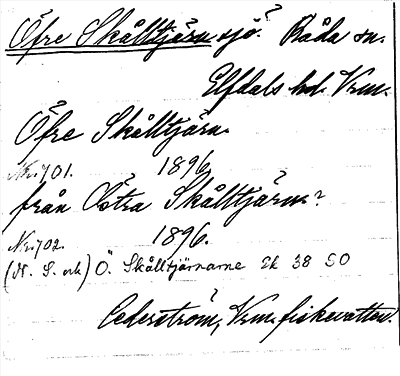 Öfre Skålltjärn sjö? Råda sn.
Elfdals hd. Vrm.
Öfre Skålltjärn.
Nr. 701. 1896.
från Östra Skålltjärn?
Nr. 702. 1896.
(N. S. och) Ö. Skålltjärnarne Ek 38 SO
Cederström, Vrm. fiskevatten.